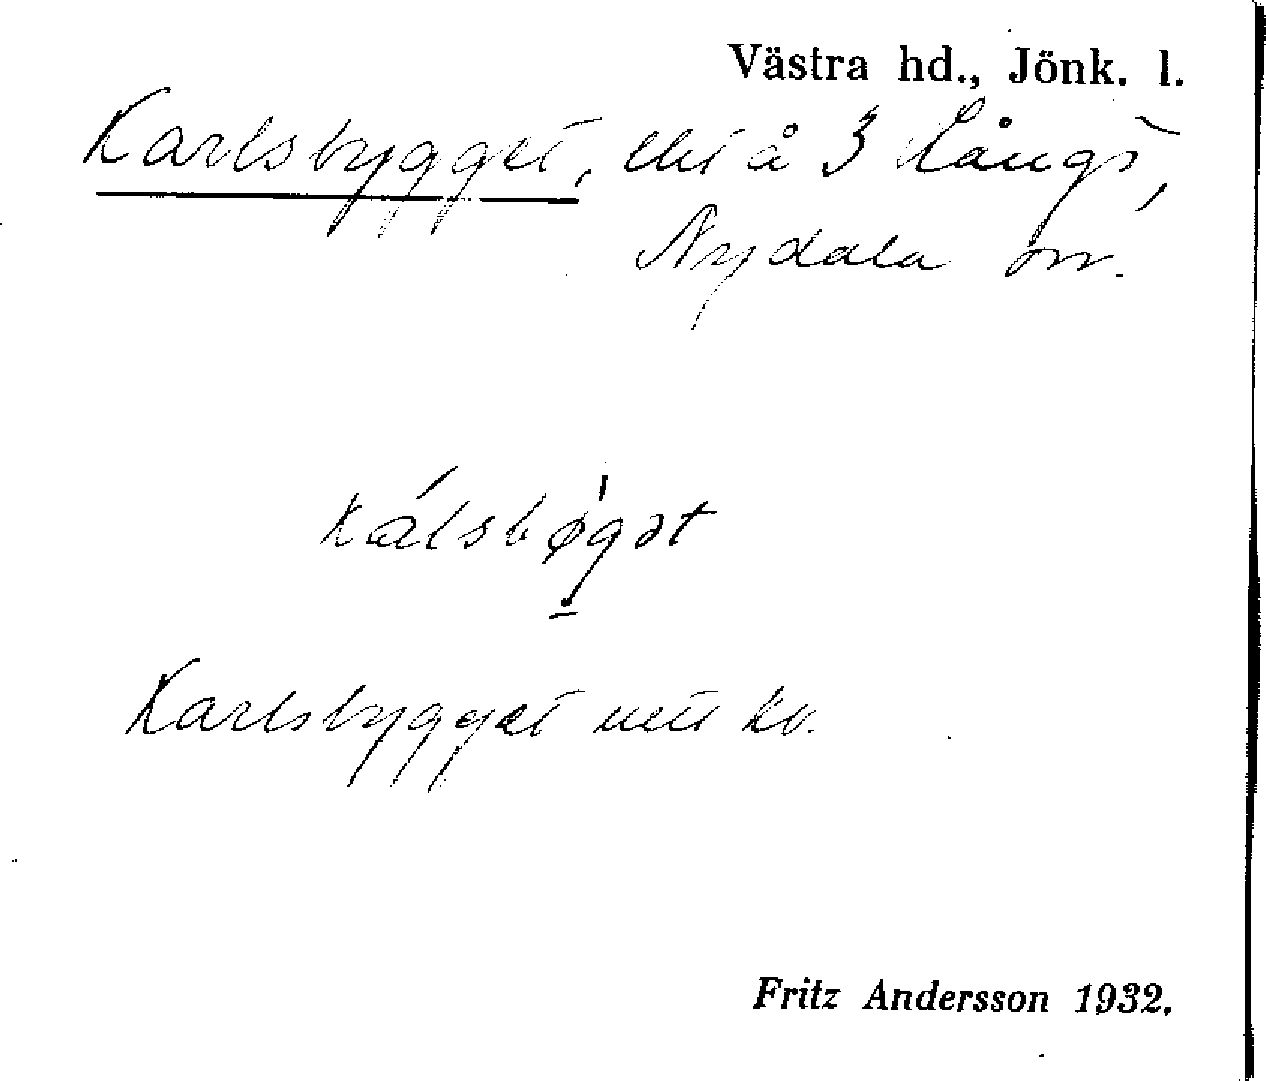 Västra hd., Jönk. l.
Karlsbygget, lht å 3 Långö,
Nydala sn.
kálsbø̀gət
Karlsbygget uttr kv.
Fritz Andersson 1932.